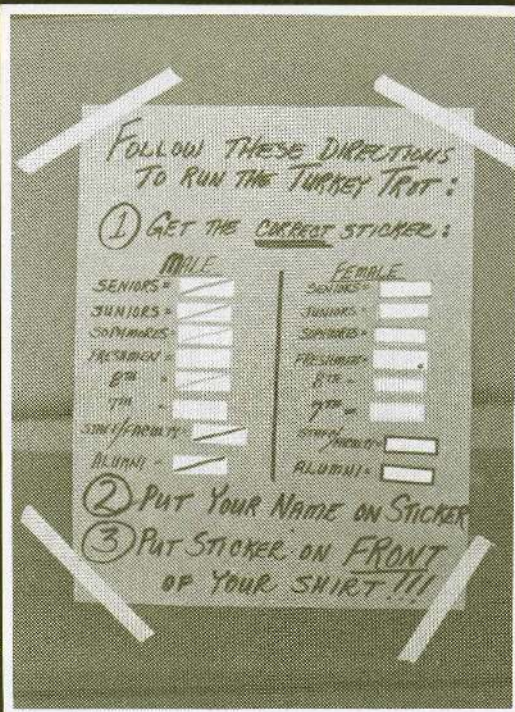 FOLLOW THESE DIRECTIONS
TO RUN THE TURKEY TROT:
① GET THE CORRECT STICKER:
MALE
SENIORS=
JUNIORS=
SOPHMORES=
FRESHMEN=
8TH =
7TH =
STAFF/FACULTY=
ALUMNI=
FEMALE
SENIORS=
JUNIORS=
SOPHMORES=
FRESHMEN=
8TH =
7TH =
STAFF/FACULTY=
ALUMNI=
② PUT YOUR NAME ON STICKER
③ PUT STICKER ON FRONT
OF YOUR SHIRT!!!